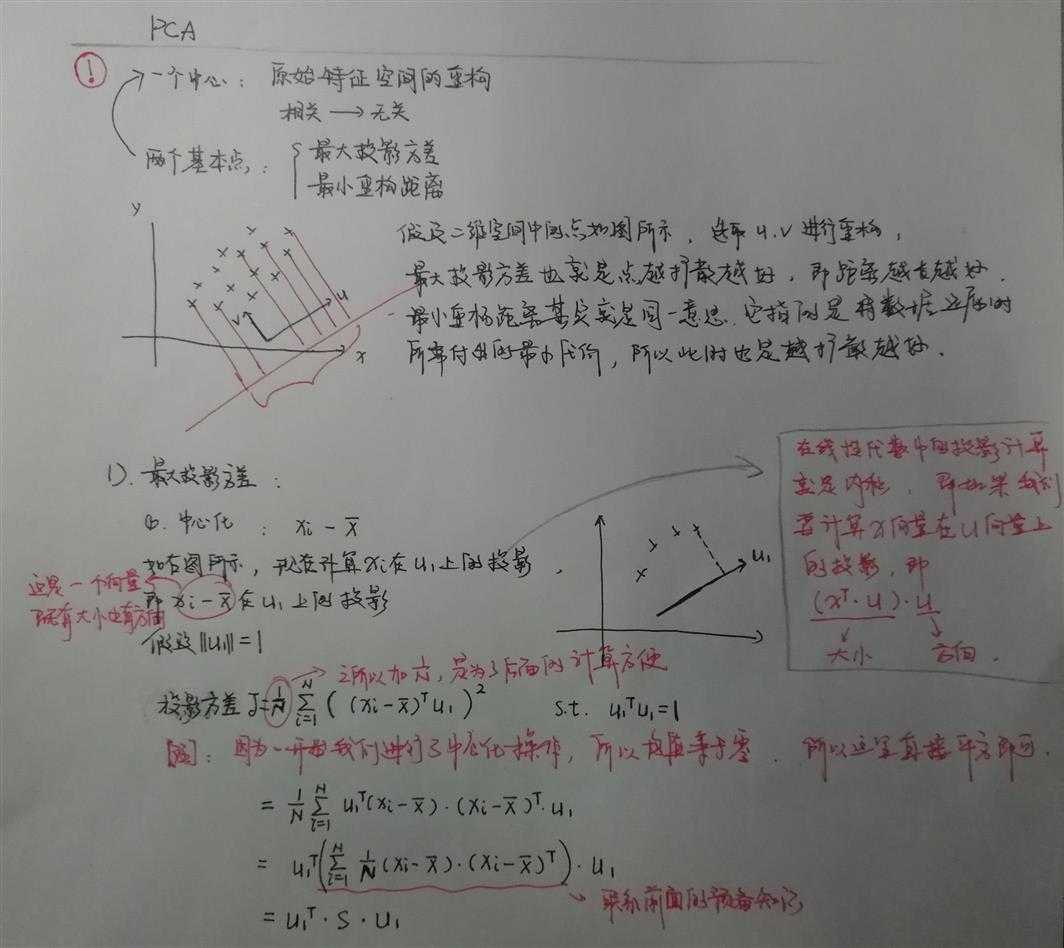 PCA
! 一个中心: 原始特征空间的重构
相关 → 无关
两个基本点: { 最大投影方差
最小重构距离
y
u
v
x
假设二维空间中的点如图所示, 选取 u.v 进行重构,
最大投影方差也就是点越扩散越好, 即距离越大越好.
最小重构距离其实就是同一意思, 它指的是将数据还原时
所要付出的最小代价, 所以此时也是越扩散越好.
1). 最大投影方差:
中心化: xi - x̄
如右图所示, 现在计算 xi 在 u₁ 上的投影,
即 xi - x̄ 在 u₁ 上的投影
这是一个向量
既有大小也有方向
假设 ||u₁|| = 1
u₁
在线性代数中的投影计算
就是内积, 即如果我们
要计算 x 向量在 u 向量上
的投影, 即
(xᵀ·u)·u
大小 方向.
之所以加 1/N, 是为了后面的计算方便
投影方差 J = 1/N ∑ᵢ₌₁ᴺ ((xi - x̄)ᵀ u₁)² s.t. u₁ᵀu₁ = 1
因为一开始我们进行了中心化操作, 所以均值等于零. 所以这里直接平方即可.
= 1/N ∑ᵢ₌₁ᴺ u₁ᵀ(xi - x̄)·(xi - x̄)ᵀ·u₁
= u₁ᵀ(∑ᵢ₌₁ᴺ 1/N (xi - x̄)·(xi - x̄)ᵀ)·u₁
联系前面的预备知识
= u₁ᵀ·S·u₁